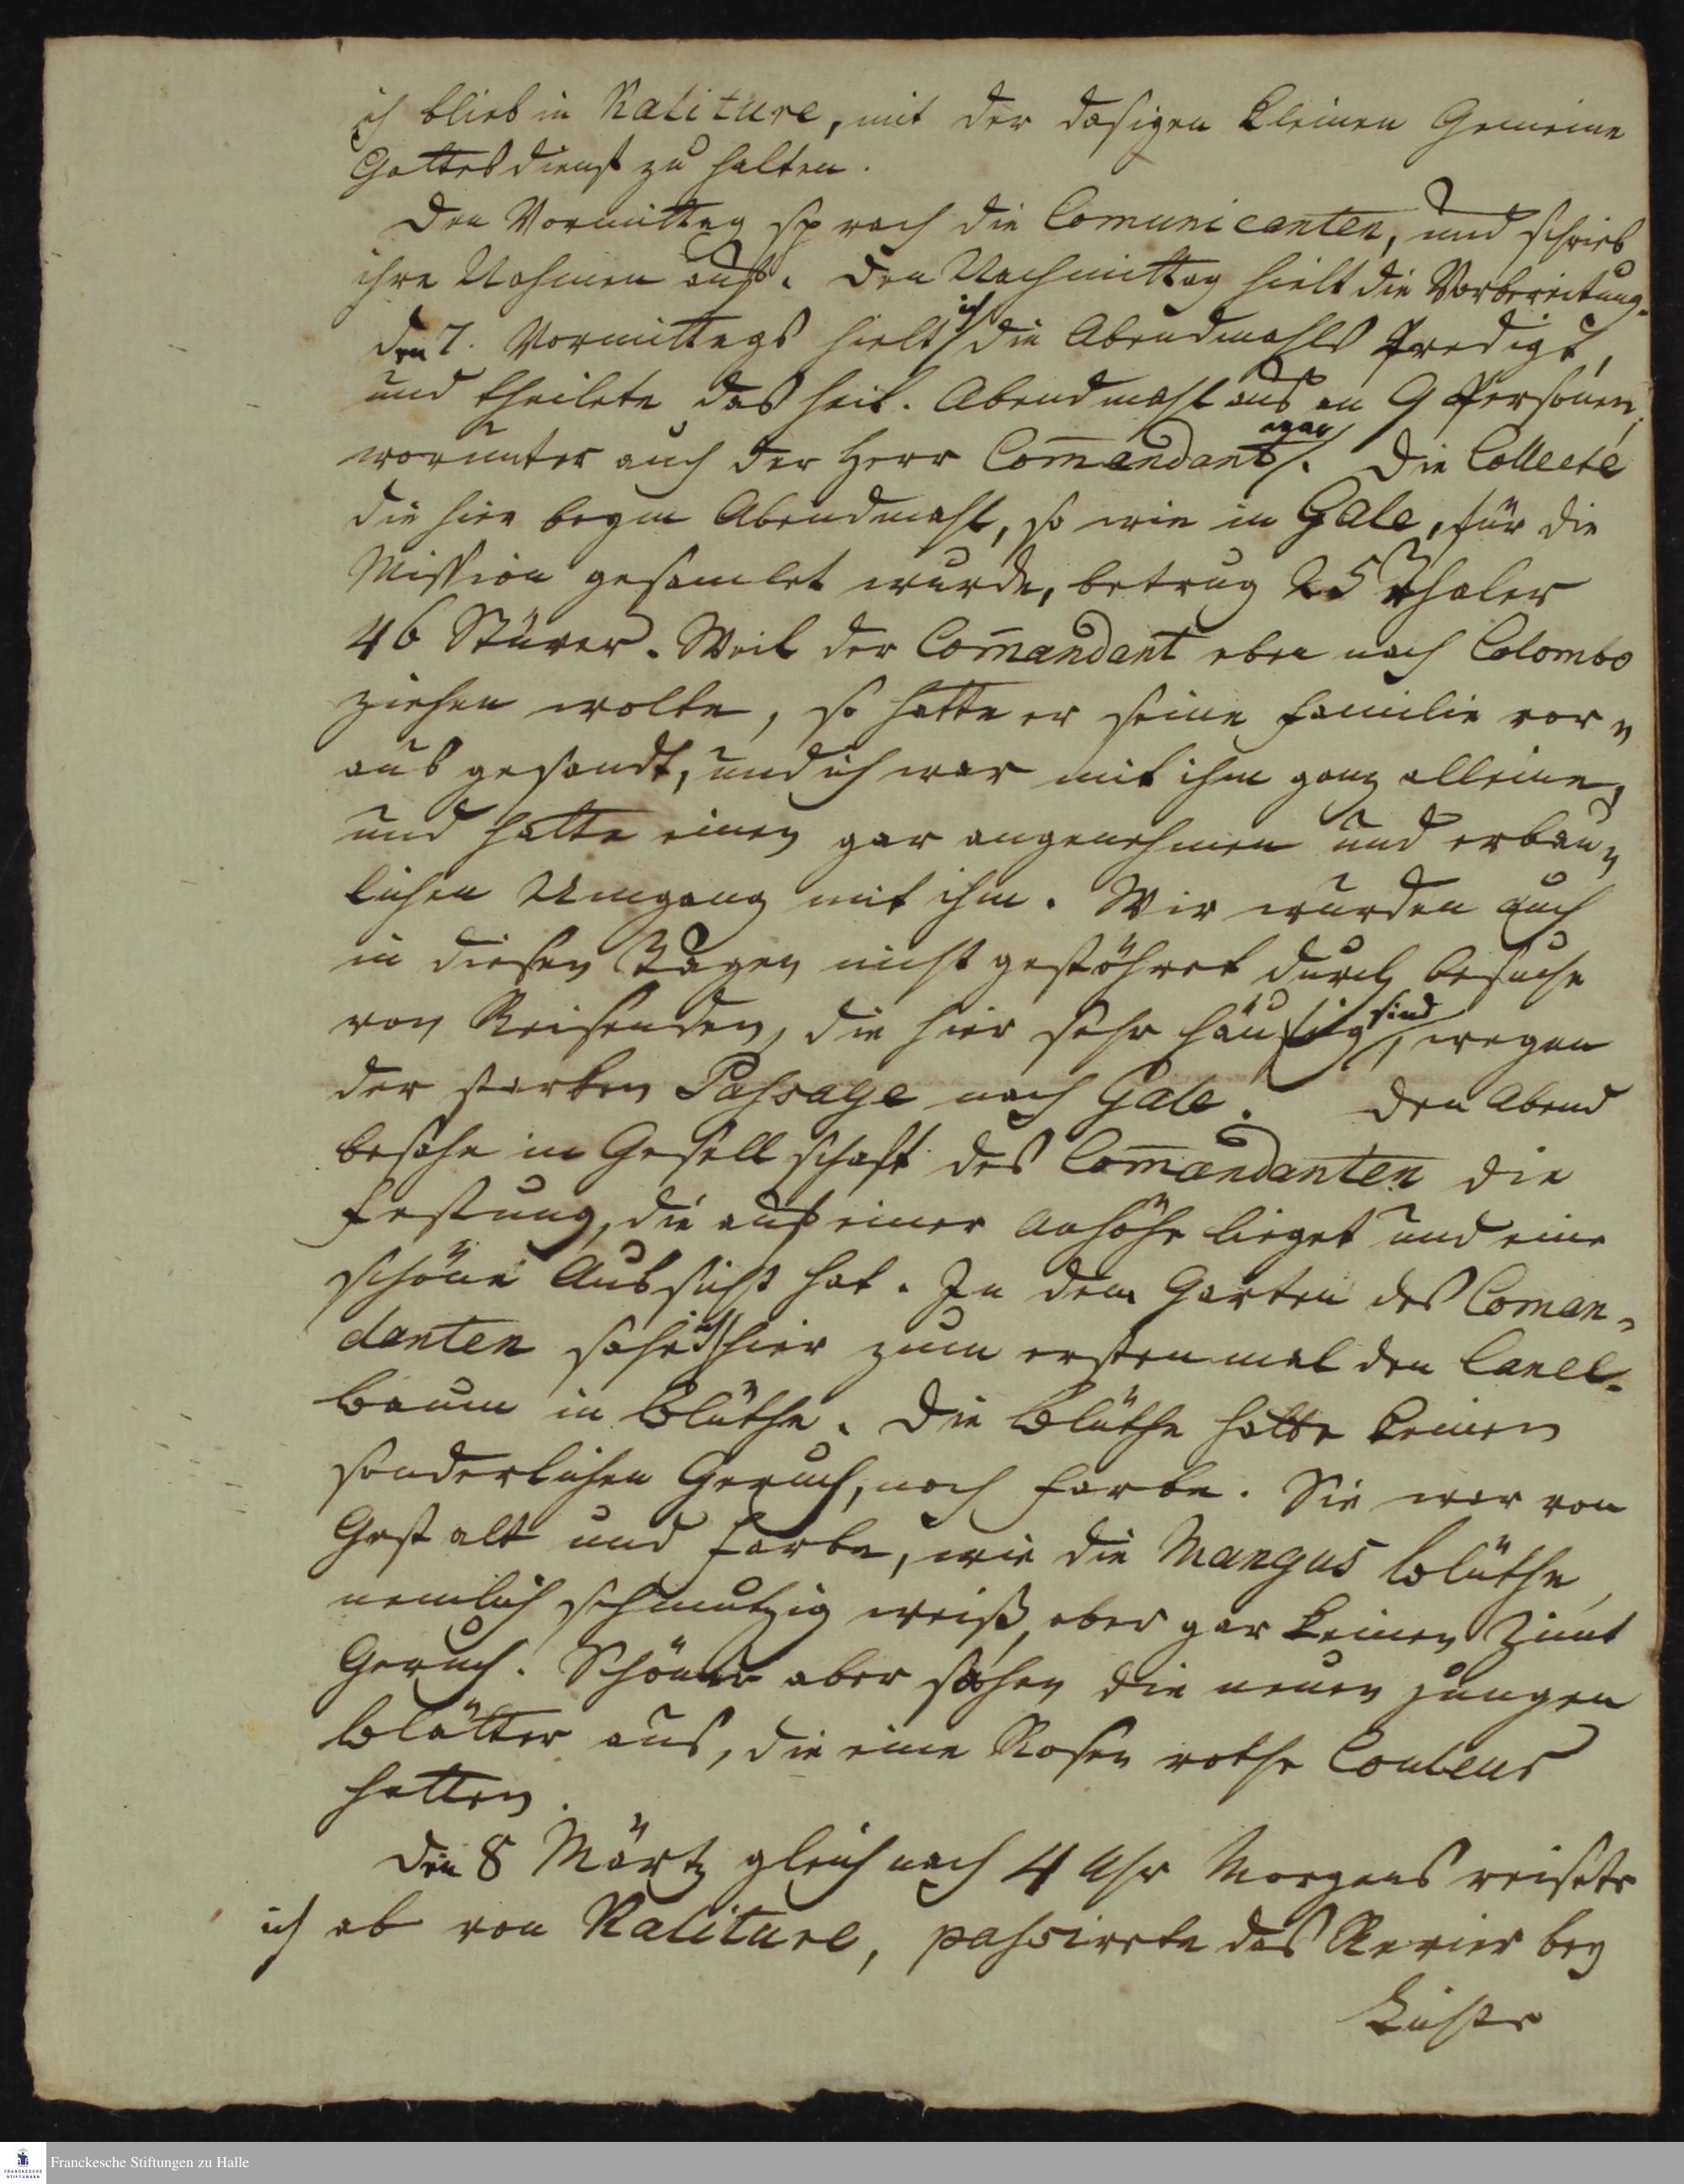 ich blieb in Kaliture, mit der dasigen kleinen Gemeine
Gottesdienst zu halten.
Den Vormittag sprach die Comunicanten, und schrieb
ihre Nahmen auf. Den Nachmittag hielt die Vorbereitung.
den 7. Vormittags hielt ich die Abendmahls Predigt,
und theilete das heil. Abendmahl aus an 9 Personen,
worunter auch der Herr Com̄andant war. Die Collecte
die hier beym Abendmahl, so wie in Gale, für die
Mission gesamlet wurde, betrug 25 Rthaler
46 Stüver. Weil der Com̄andant eben nach Colombo
ziehen wolte, so hatte er seine Familie vor„
aus gesandt, und ich war mit ihm ganz alleine,
und hatte einen gar angenehmen und erbau„
lichen Umgang mit ihm. Wir wurden auch
in diesen Tagen nicht gestöhret durch Besuche
von Reisenden, die hier sehr häufig sind, wegen
der starken Passage nach Gale. Den Abend
besahe in Gesellschaft des Com̄andanten die
Festung, die auf einer Anhöhe lieget und eine
schöne Aussicht hat. In dem Garten des Coman„
danten sahe ich hier zum erstenmal den Canel-
baum in Blüthe. Die Blüthe hatte keinen
sonderlichen Geruch, noch Farbe. Sie war von
Gestalt und Farbe, wie die Mangus Blüthe,
nemlich schmutzig weiß, aber gar keinen Zimt
Geruch. Schöner aber sahen die neuen jungen
Blätter aus, die eine Rosen rothe Couleur
hatten.
Den 8 Märtz gleich nach 4 Uhr Morgens reisete
ich ab von Kaliture, passirete das Revier bey
Franckesche Stiftungen zu Halle
FRANCKESCHE
STIFTUNGEN